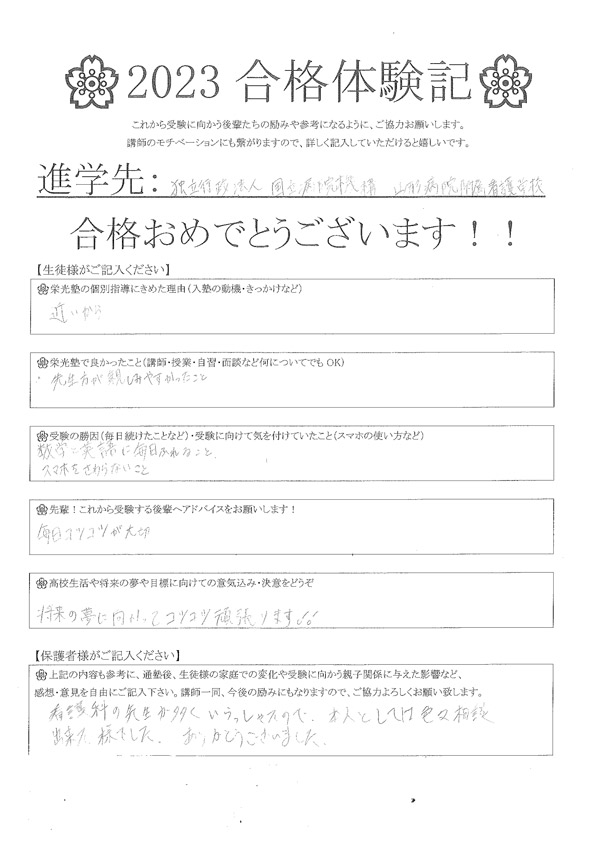 2023 合格体験記
これから受験に向かう後輩たちの励みや参考になるように、ご協力お願いします。
講師のモチベーションにも繋がりますので、詳しく記入していただけると嬉しいです。
進学先： 独立行政法人 国立病院機構 山形病院附属看護学校
合格おめでとうございます！！
【生徒様がご記入ください】
栄光塾の個別指導にきめた理由（入塾の動機・きっかけなど）
近いから
栄光塾で良かったこと（講師・授業・自習・面談など何についてでもOK）
・先生方が親しみやすかったこと
受験の勝因（毎日続けたことなど）・受験に向けて気を付けていたこと（スマホの使い方など）
数学と英語に毎日ふれること
スマホをさわらないこと
先輩！これから受験する後輩へアドバイスをお願いします！
毎日コツコツが大切
高校生活や将来の夢や目標に向けての意気込み・決意をどうぞ
将来の夢に向かってコツコツ頑張ります!!
【保護者様がご記入ください】
上記の内容も参考に、通塾後、生徒様の家庭での変化や受験に向かう親子関係に与えた影響など、
感想・意見を自由にご記入下さい。講師一同、今後の励みにもなりますので、ご協力よろしくお願い致します。
看護科の先生が多くいらっしゃるので、本人としては色々相談
出来た様でした。ありがとうございました。